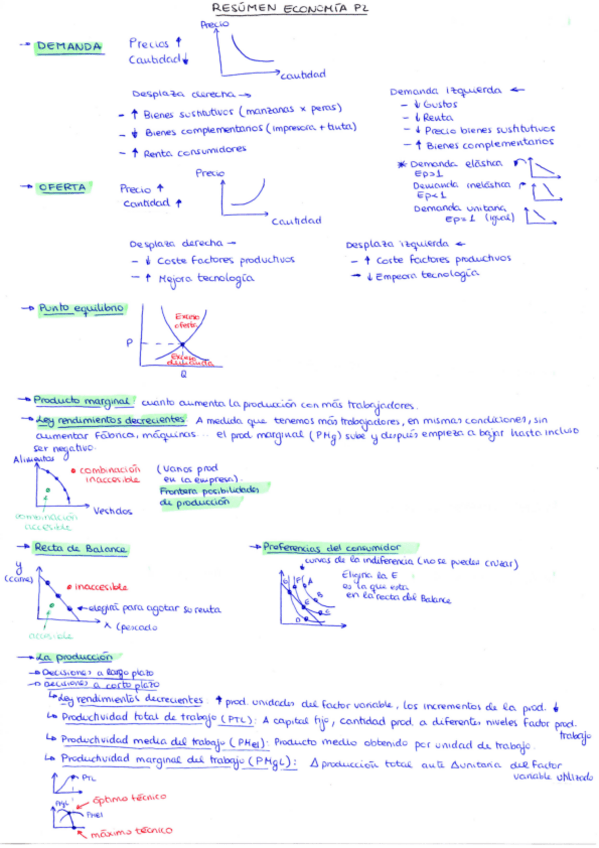 RESÚMEN ECONOMÍA P2
→ DEMANDA
Precios ↑
Cantidad ↓
Precio
cantidad
Desplaza derecha →
- ↑ Bienes sustitutivos (manzanas x peras)
- ↓ Bienes complementarios (impresora + tinta)
- ↑ Renta consumidores
Demanda izquierda ←
- ↓ Gustos
- ↓ Renta
- ↓ Precio bienes sustitutivos
- ↑ Bienes complementarios
* Demanda elástica
Ep>1
Demanda inelástica
Ep<1
Demanda unitaria
Ep=1 (igual)
→ OFERTA
Precio ↑
Cantidad ↑
Precio
Cantidad
Desplaza derecha →
- ↓ Coste factores productivos
- ↑ Mejora tecnología
Desplaza izquierda ←
- ↑ Coste factores productivos
- ↓ Empeora tecnología
→ Punto equilibrio
Exceso
oferta
Exceso
demanda
P
Q
→ Producto marginal cuanto aumenta la producción con más trabajadores.
→ Ley rendimientos decrecientes A medida que tenemos más trabajadores, en mismas condiciones, sin
aumentar fábrica, máquinas... el prod. marginal (PMg) sube y después empieza a bajar hasta incluso
ser negativo.
Alimentos
• combinación
inaccesible
(varios prod
en la empresa).
Frontera posibilidades
de producción
Vestidos
combinación
accesible
→ Recta de Balance
y
(carne)
• inaccesible
elegirá para agotar su renta
x (pescado
accesible
→ Preferencias del consumidor
curvas de la indiferencia (no se puedes cruzar)
Elegiría la E
es la que está
en la recta del Balance
→ La producción
→ Decisiones a largo plazo
→ Decisiones a corto plazo
↳ Ley rendimientos decrecientes. ↑ prod. unidades del factor variable, los incrementos de la prod. ↓
↳ Productividad total de trabajo (PTL): A capital fijo, cantidad prod. a diferentes niveles factor prod.
trabajo
↳ Productividad media del trabajo (PMeL): Producto medio obtenido por unidad de trabajo.
↳ Productividad marginal del trabajo (PMgL): Δ producción total ante Δ unitaria del factor
variable utilizado
PTL
PMgL
óptimo técnico
PMeL
máximo técnico